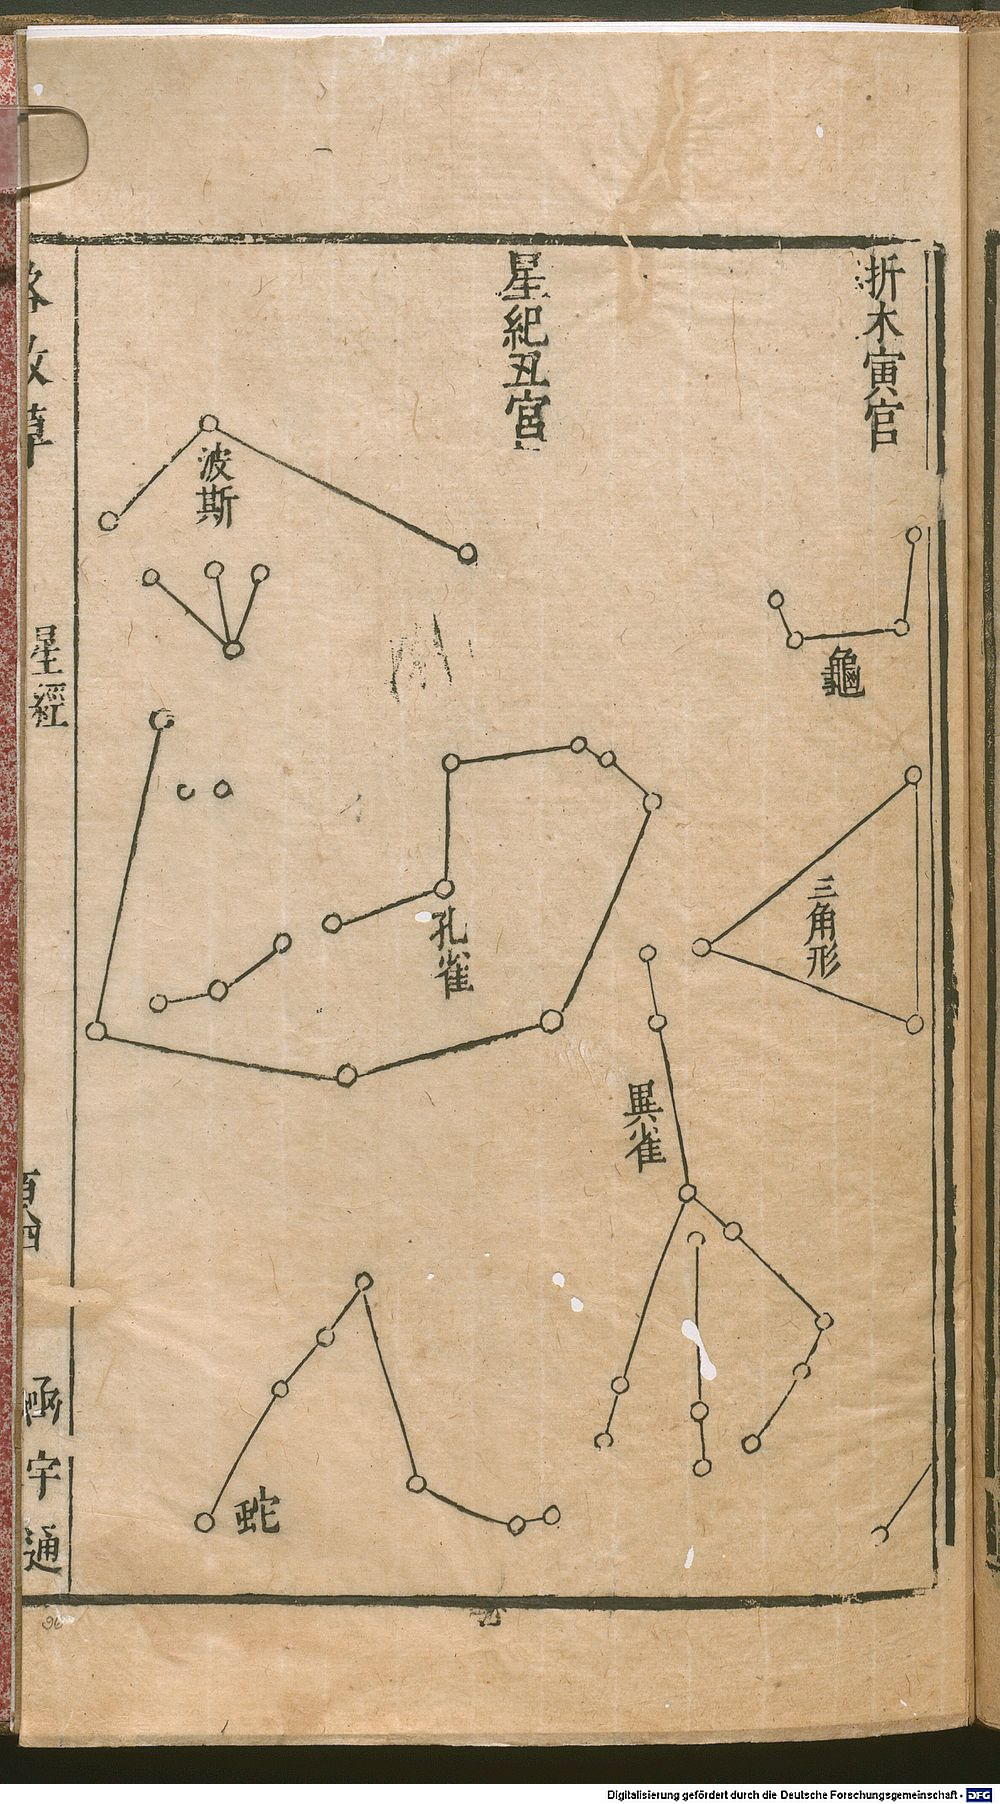 折木寅官
星紀丑宮
龜
三角形
異雀
波斯
孔雀
蛇
星經
函宇通
96
Digitalisierung gefördert durch die Deutsche Forschungsgemeinschaft - DFG